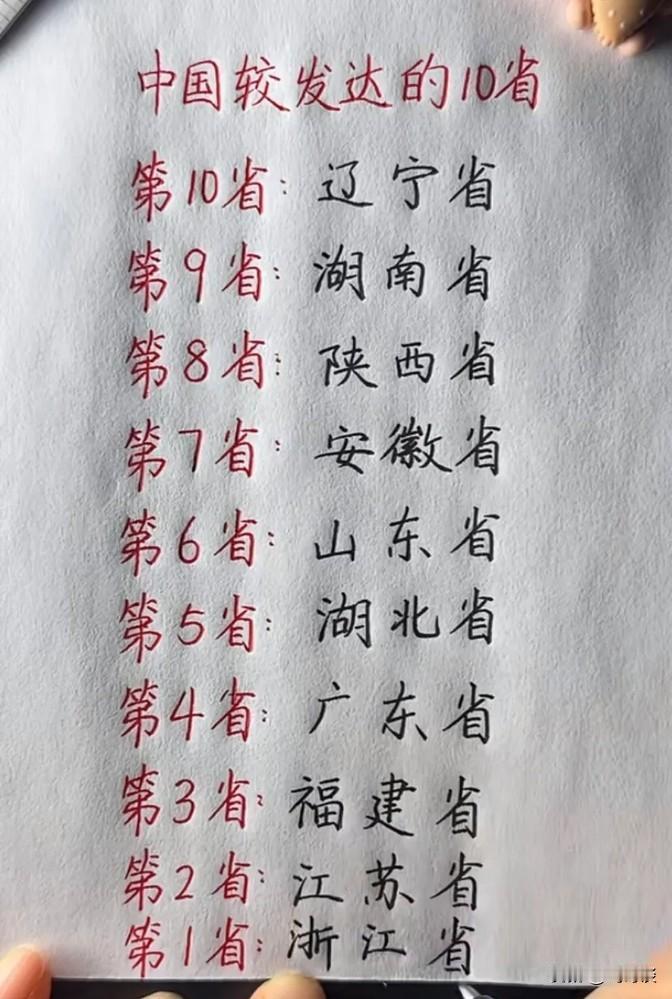 中国较发达的10省
第10省: 辽宁省
第9省: 湖南省
第8省: 陕西省
第7省: 安徽省
第6省: 山东省
第5省: 湖北省
第4省: 广东省
第3省: 福建省
第2省: 江苏省
第1省: 浙江省